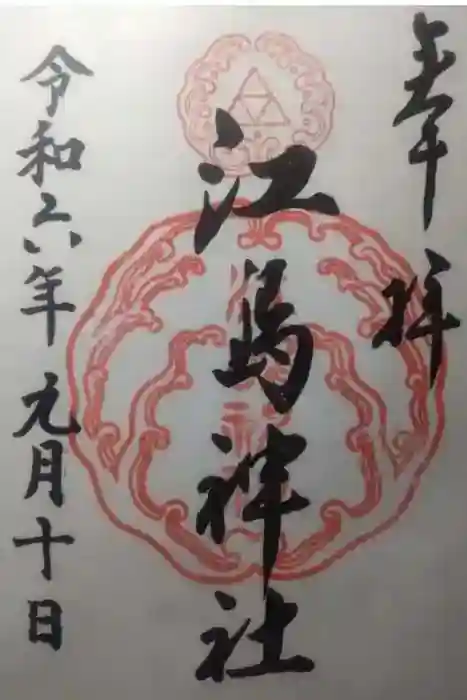 奉拝
江島神社
令和六年元月十日